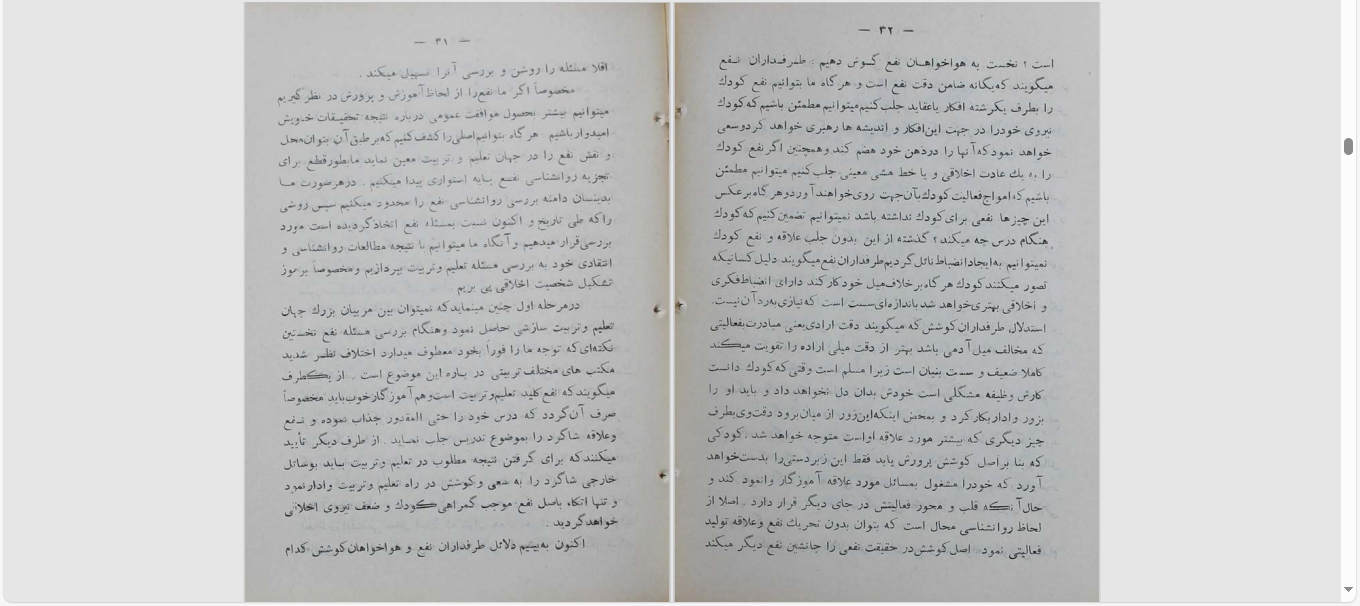 — ۳۱ —
اقلا مسئله را روشن و بررسی آنرا تسهیل میکند .
مخصوصاً اگر ما نفع را از لحاظ آموزش و پرورش در نظر گیریم
میتوانیم بیشتر بحصول موافقت عمومی درباره نتیجه تحقیقات خویش
امیدوار باشیم . هرگاه بتوانیم اصلی را کشف کنیم که بر طبق آن بتوان محل
و نقش نفع را در جهان تعلیم و تربیت معین نماید ما بطور قطع برای
تجزیه روانشناسی نفع پایه استواری پیدا میکنیم . در هر صورت ما
بدینسان دامنه بررسی روانشناسی نفع را محدود میکنیم سپس روشی
را که طی تاریخ و اکنون نسبت بمسئله نفع اتخاذ گردیده است مورد
بررسی قرار میدهیم و آنگاه ما میتوانیم با نتیجه مطالعات روانشناسی و
انتقادی خود به بررسی مسئله تعلیم و تربیت بپردازیم و مخصوصاً برموز
تشکیل شخصیت اخلاقی پی بریم
در مرحله اول چنین مینماید که نمیتوان بین مربیان بزرگ جهان
تعلیم و تربیت سازشی حاصل نمود و هنگام بررسی مسئله نفع نخستین
نکته‌ای که توجه ما را فوراً بخود معطوف میدارد اختلاف نظر شدید
مکتب های مختلف تربیتی در باره این موضوع است . از یکطرف
میگویند که نفع کلید تعلیم و تربیت است و هم آموزگار خوب باید مخصوصاً
صرف آن گردد که درس خود را حتی المقدور جذاب نموده و نفع
وعلاقه شاگرد را بموضوع تدریس جلب نماید . از طرف دیگر تأیید
میکنند که برای گرفتن نتیجه مطلوب در تعلیم و تربیت باید بوسائل
خارجی شاگرد را به سعی و کوشش در راه تعلیم و تربیت وادار نمود
و تنها اتکاء باصل نفع موجب گمراهی کودك و ضعف نیروی اخلاقی
خواهد گردید .
اکنون به‌بینیم دلائل طرفداران نفع و هواخواهان کوشش کدام
— ۳۲ —
است ؟ نخست به هواخواهان نفع گوش دهیم : طرفداران نفع
میگویند که یگانه ضامن دقت نفع است و هرگاه ما بتوانیم نفع کودك
را بطرف یکرشته افکار یا عقاید جلب کنیم میتوانیم مطمئن باشیم که کودك
نیروی خود را در جهت این افکار و اندیشه ها رهبری خواهد کرد و سعی
خواهد نمود که آنها را در ذهن خود هضم کند و همچنین اگر نفع کودك
را به یك عادت اخلاقی و یا خط مشی معینی جلب کنیم میتوانیم مطمئن
باشیم که امواج فعالیت کودك بآن جهت روی خواهند آورد و هرگاه برعکس
این چیزها نفعی برای کودك نداشته باشد نمیتوانیم تضمین کنیم که کودك
هنگام درس چه میکند ؟ گذشته از این بدون جلب علاقه و نفع کودك
نمیتوانیم به ایجاد انضباط نائل گردیم طرفداران نفع میگویند دلیل کسانیکه
تصور میکنند کودك هرگاه برخلاف میل خود کار کند دارای انضباط فکری
و اخلاقی بهتری خواهد شد باندازه‌ای سست است که نیازی به رد آن نیست.
استدلال طرفداران کوشش که میگویند دقت ارادی یعنی مبادرت بفعالیتی
که مخالف میل آدمی باشد بهتر از دقت میلی اراده را تقویت میکند
کاملا ضعیف و سست بنیان است زیرا مسلم است وقتی که کودك دانست
کارش وظیفه مشکلی است خودش بدان دل نخواهد داد و باید او را
بزور وادار بکار کرد و بمحض اینکه این زور از میان برود دقت وی بطرف
چیز دیگری که بیشتر مورد علاقه اوست متوجه خواهد شد . کودکی
که بنا بر اصل کوشش پرورش یابد فقط این زبردستی را بدست خواهد
آورد که خود را مشغول بمسائل مورد علاقه آموزگار وانمود کند و
حال آنکه قلب و محور فعالیتش در جای دیگر قرار دارد . اصلا از
لحاظ روانشناسی محال است که بتوان بدون تحریك نفع و علاقه تولید
فعالیتی نمود . اصل کوشش در حقیقت نفعی را جانشین نفع دیگر میکند